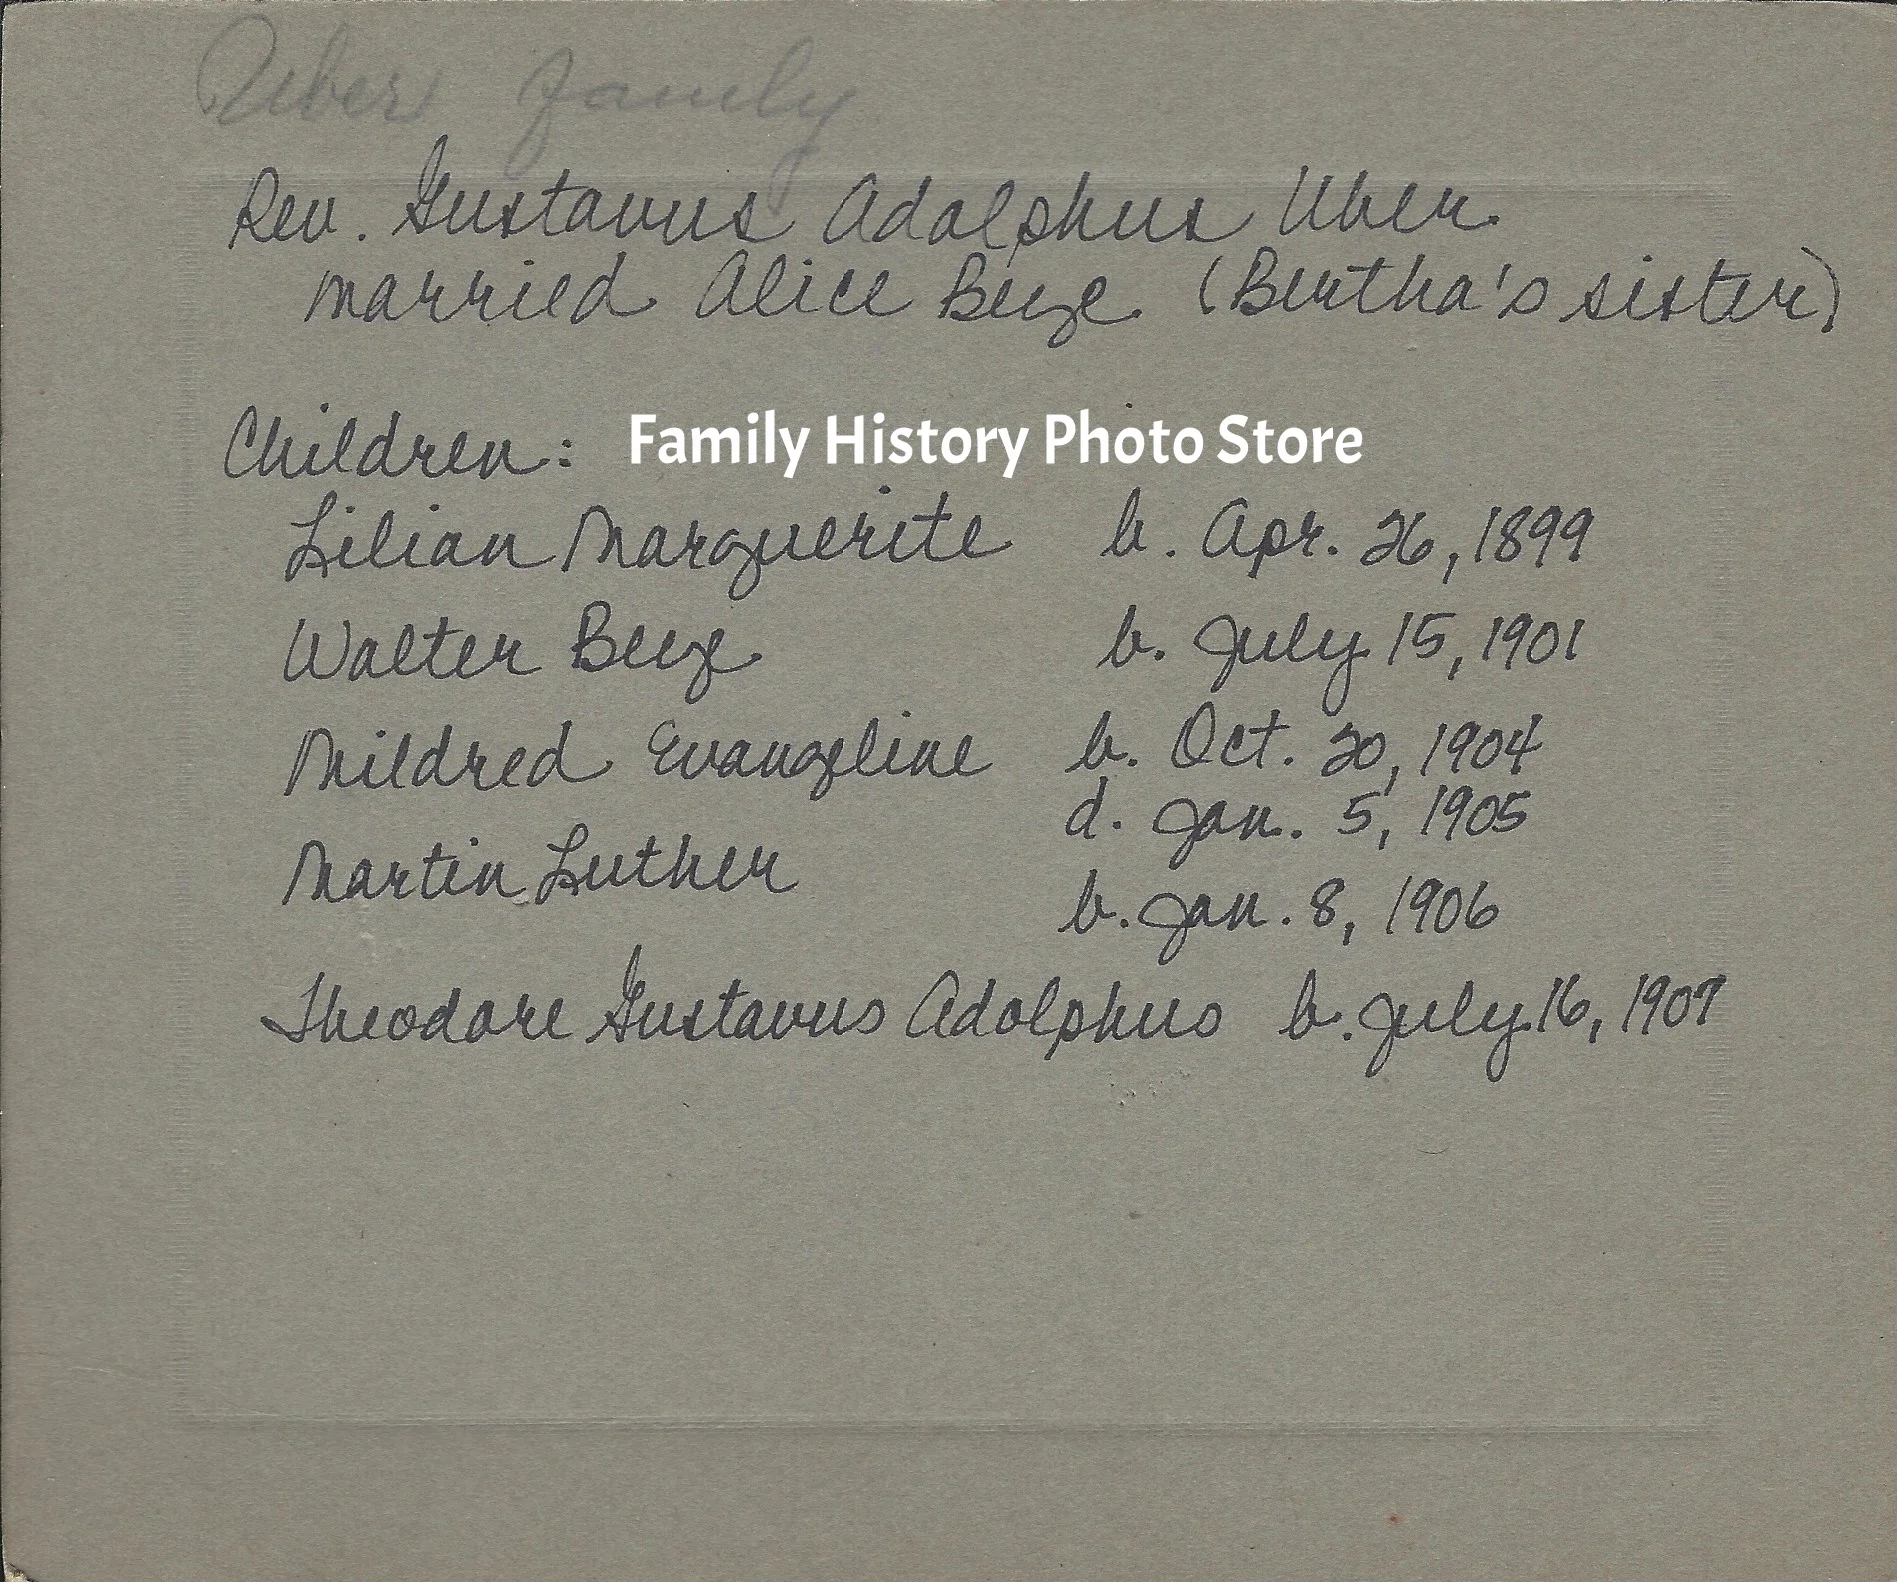 Uber family
Rev. Gustavus Adolphus Uber
married Alice Beye (Bertha's sister)
Children:
Family History Photo Store
Lilian Marguerite b. Apr. 26, 1899
Walter Beye b. July 15, 1901
Mildred Evangeline b. Oct. 20, 1904
d. Jan. 5, 1905
Martin Luther
b. Jan. 8, 1906
Theodore Gustavus Adolphus b. July 16, 1907